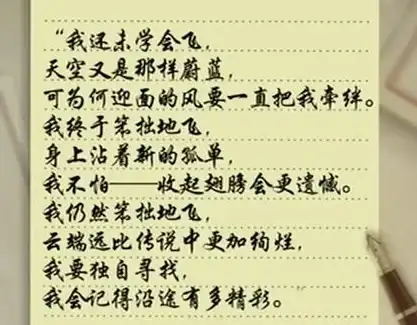 “我还未学会飞，
天空又是那样蔚蓝，
可为何迎面的风要一直把我牵绊。
我终于笨拙地飞，
身上沾着新的孤单，
我不怕——收起翅膀会更遗憾。
我仍然笨拙地飞，
云端远比传说中更加绚烂，
我要独自寻找，
我会记得沿途有多精彩。